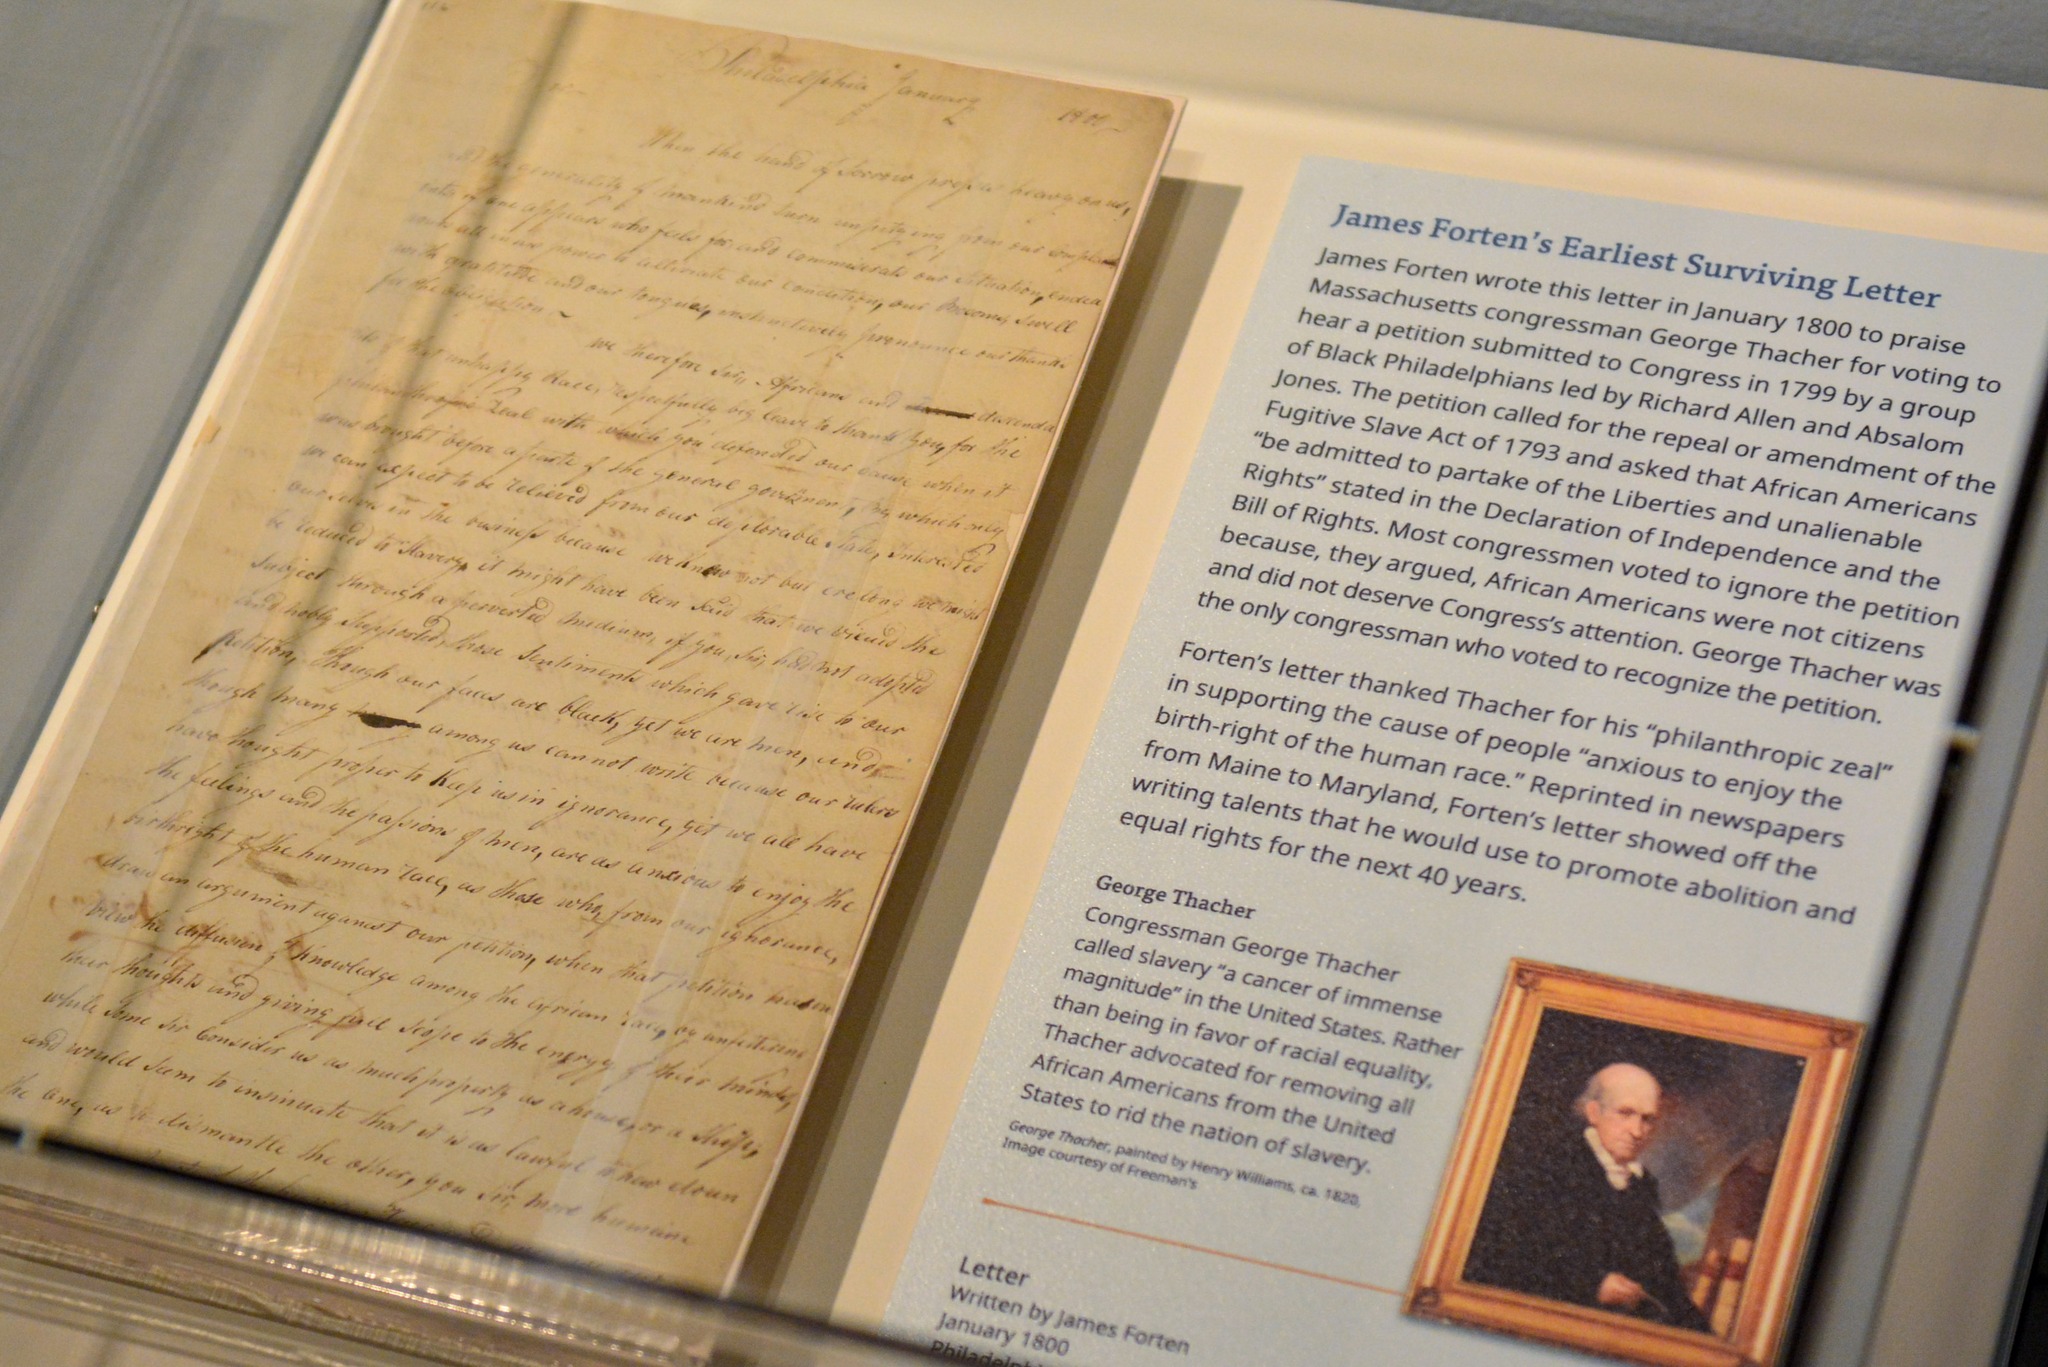 Philadelphia January
1800
When the hand of Sorrow presses heavy on us,
and the generality of mankind turn unpitying from our complaints
if one appears who feels for and commiserates our situation, endea
vours all in his power to alleviate our condition, our bosoms swell
with gratitude and our tongues instinctively pronounce our thanks
for the obligation
We therefore Sir, Africans and descenda
nts of that unhappy Race, respectfully beg leave to thank You, for the
philanthropic Zeal with which you defended our cause when it
was brought before a parte of the general goverment, by which only
we can expect to be relieved from our deplorable State, Interested
ourselves in the business because we knew not but ere long we might
be reduced to Slavery, it might have been said that we viewed the
Subject through a perverted medium, if you, Sir, had not adopted
and nobly Supported, those Sentiments which gave rise to our
Petition, Though our faces are black, yet we are men, and
though many among us cannot write because our rulers
have thought proper to Keep us in ignorance, yet we all have
the feelings and the passions of men, are as anxious to enjoy the
birthright of the human race, as those who, from our ignorance,
draw an argument against our petition, when that petition has in
view the diffusion of Knowledge among the African race, by unfettering
their thoughts and giving full scope to the energy of their minds,
while some Sir Consider us as much property as a house, or a Ship,
and would seem to insinuate that it is as lawful to hew down
the one, as to dismantle the other, you Sir, more humane
James Forten's Earliest Surviving Letter
James Forten wrote this letter in January 1800 to praise
Massachusetts congressman George Thacher for voting to
hear a petition submitted to Congress in 1799 by a group
of Black Philadelphians led by Richard Allen and Absalom
Jones. The petition called for the repeal or amendment of the
Fugitive Slave Act of 1793 and asked that African Americans
"be admitted to partake of the Liberties and unalienable
Rights" stated in the Declaration of Independence and the
Bill of Rights. Most congressmen voted to ignore the petition
because, they argued, African Americans were not citizens
and did not deserve Congress's attention. George Thacher was
the only congressman who voted to recognize the petition.
Forten's letter thanked Thacher for his "philanthropic zeal"
in supporting the cause of people "anxious to enjoy the
birth-right of the human race." Reprinted in newspapers
from Maine to Maryland, Forten's letter showed off the
writing talents that he would use to promote abolition and
equal rights for the next 40 years.
George Thacher
Congressman George Thacher
called slavery "a cancer of immense
magnitude" in the United States. Rather
than being in favor of racial equality,
Thacher advocated for removing all
African Americans from the United
States to rid the nation of slavery.
George Thacher, painted by Henry Williams, ca. 1820,
Image courtesy of Freeman's
Letter
Written by James Forten
January 1800